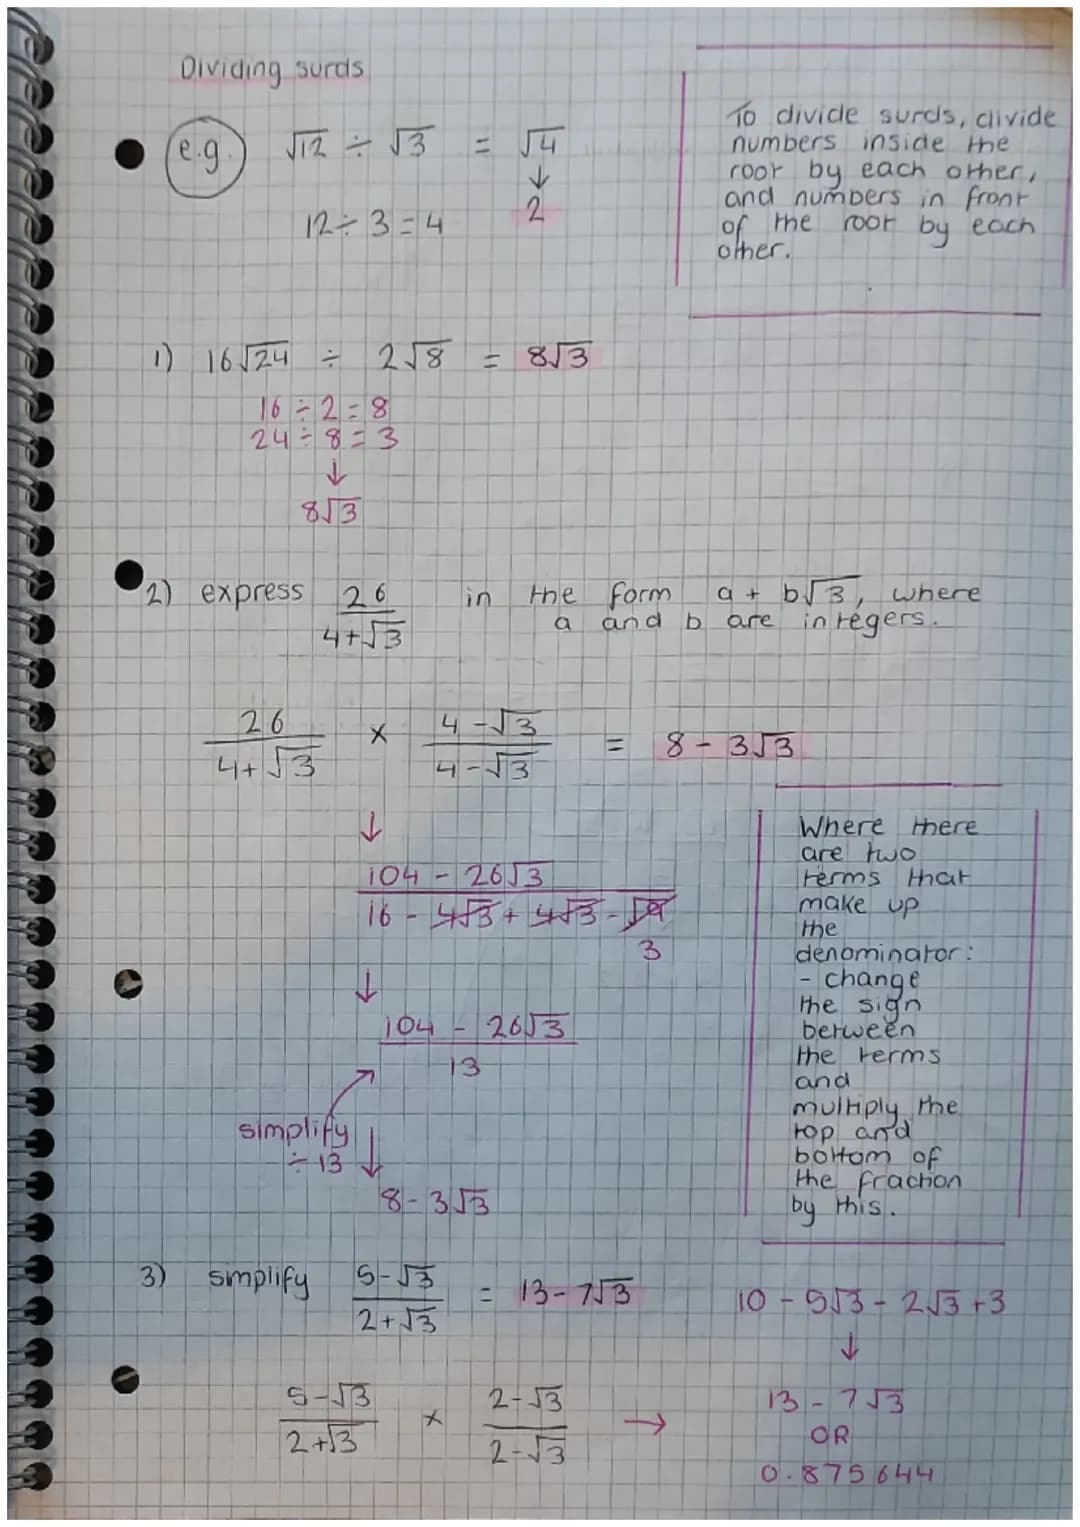 Dividing surds
To divide surds, divide
numbers inside the
root by each other,
and numbers in front
of the root by each
other.
e.g. √12 ÷ √3 = √4
↓
12 ÷ 3 = 4 2
1) 16√24 ÷ 2√8 = 8√3
16 ÷ 2 = 8
24 ÷ 8 = 3
↓
8√3
2) express 26/(4+√3) in the form a + b√3, where
a and b are integers.
26/(4+√3) × (4-√3)/(4-√3) = 8 - 3√3
↓
104 - 26√3
16 - 4√3 + 4√3 - √9
3
↓
104 - 26√3
13
simplify
÷ 13
↓
8 - 3√3
Where there
are two
terms that
make up
the
denominator:
- change
the sign
between
the terms
and
multiply the
top and
bottom of
the fraction
by this.
3) simplify (5-√3)/(2+√3) = 13 - 7√3
(5-√3)/(2+√3) × (2-√3)/(2-√3) →
10 - 5√3 - 2√3 + 3
↓
13 - 7√3
OR
0.875644